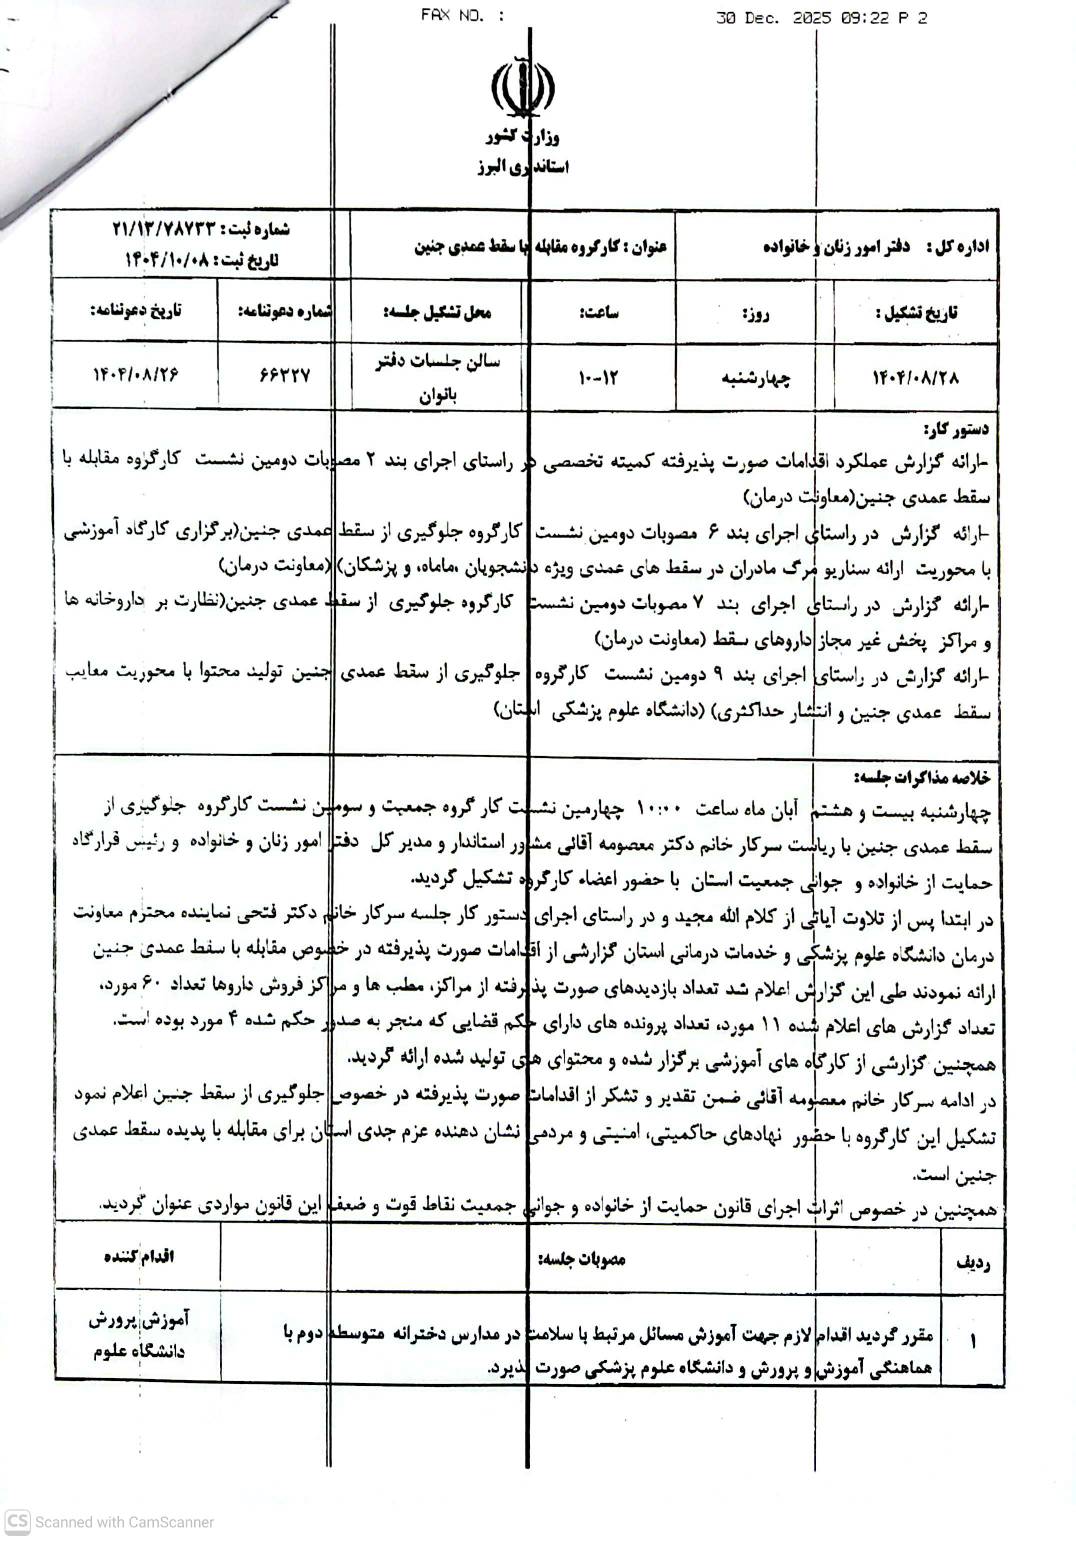 FAX NO. :
30 Dec. 2025 09:22 P 2
وزارت کشور
استانداری البرز
اداره کل : دفتر امور زنان و خانواده
عنوان : کارگروه مقابله با سقط عمدی جنین
شماره ثبت : ۲۱/۱۳/۷۸۷۳۳
تاریخ ثبت : ۱۴۰۴/۱۰/۰۸
تاریخ تشکیل : روز: ساعت: محل تشکیل جلسه: شماره دعوتنامه: تاریخ دعوتنامه:
۱۴۰۴/۰۸/۲۸ چهارشنبه ۱۰-۱۲ سالن جلسات دفتر بانوان ۶۶۲۲۷ ۱۴۰۴/۰۸/۲۶
دستور کار:
-ارائه گزارش عملکرد اقدامات صورت پذیرفته کمیته تخصصی در راستای اجرای بند ۲ مصوبات دومین نشست کارگروه مقابله با
سقط عمدی جنین(معاونت درمان)
-ارائه گزارش در راستای اجرای بند ۶ مصوبات دومین نشست کارگروه جلوگیری از سقط عمدی جنین(برگزاری کارگاه آموزشی
با محوریت ارائه سناریو مرگ مادران در سقط های عمدی ویژه دانشجویان ،ماماه، و پزشکان) (معاونت درمان)
-ارائه گزارش در راستای اجرای بند ۷ مصوبات دومین نشست کارگروه جلوگیری از سقط عمدی جنین(نظارت بر داروخانه ها
و مراکز پخش غیر مجاز داروهای سقط (معاونت درمان)
-ارائه گزارش در راستای اجرای بند ۹ دومین نشست کارگروه جلوگیری از سقط عمدی جنین تولید محتوا با محوریت معایب
سقط عمدی جنین و انتشار حداکثری) (دانشگاه علوم پزشکی استان)
خلاصه مذاکرات جلسه:
چهارشنبه بیست و هشتم آبان ماه ساعت ۱۰:۰۰ چهارمین نشست کار گروه جمعیت و سومین نشست کارگروه جلوگیری از
سقط عمدی جنین با ریاست سرکار خانم دکتر معصومه آقائی مشاور استاندار و مدیر کل دفتر امور زنان و خانواده و رئیس قرارگاه
حمایت از خانواده و جوانی جمعیت استان با حضور اعضاء کارگروه تشکیل گردید.
در ابتدا پس از تلاوت آیاتی از کلام الله مجید و در راستای اجرای دستور کار جلسه سرکار خانم دکتر فتحی نماینده محترم معاونت
درمان دانشگاه علوم پزشکی و خدمات درمانی استان گزارشی از اقدامات صورت پذیرفته در خصوص مقابله با سقط عمدی جنین
ارائه نمودند طی این گزارش اعلام شد تعداد بازدیدهای صورت پذیرفته از مراکز، مطب ها و مراکز فروش داروها تعداد ۶۰ مورد،
تعداد گزارش های اعلام شده ۱۱ مورد، تعداد پرونده های دارای حکم قضایی که منجر به صدور حکم شده ۴ مورد بوده است.
همچنین گزارشی از کارگاه های آموزشی برگزار شده و محتوای های تولید شده ارائه گردید.
در ادامه سرکار خانم معصومه آقائی ضمن تقدیر و تشکر از اقدامات صورت پذیرفته در خصوص جلوگیری از سقط جنین اعلام نمود
تشکیل این کارگروه با حضور نهادهای حاکمیتی، امنیتی و مردمی نشان دهنده عزم جدی استان برای مقابله با پدیده سقط عمدی
جنین است.
همچنین در خصوص اثرات اجرای قانون حمایت از خانواده و جوانی جمعیت نقاط قوت و ضعف این قانون مواردی عنوان گردید.
ردیف مصوبات جلسه: اقدام کننده
۱ مقرر گردید اقدام لازم جهت آموزش مسائل مرتبط با سلامت در مدارس دخترانه متوسطه دوم با
هماهنگی آموزش و پرورش و دانشگاه علوم پزشکی صورت پذیرد.
آموزش پرورش
دانشگاه علوم
CS Scanned with CamScanner